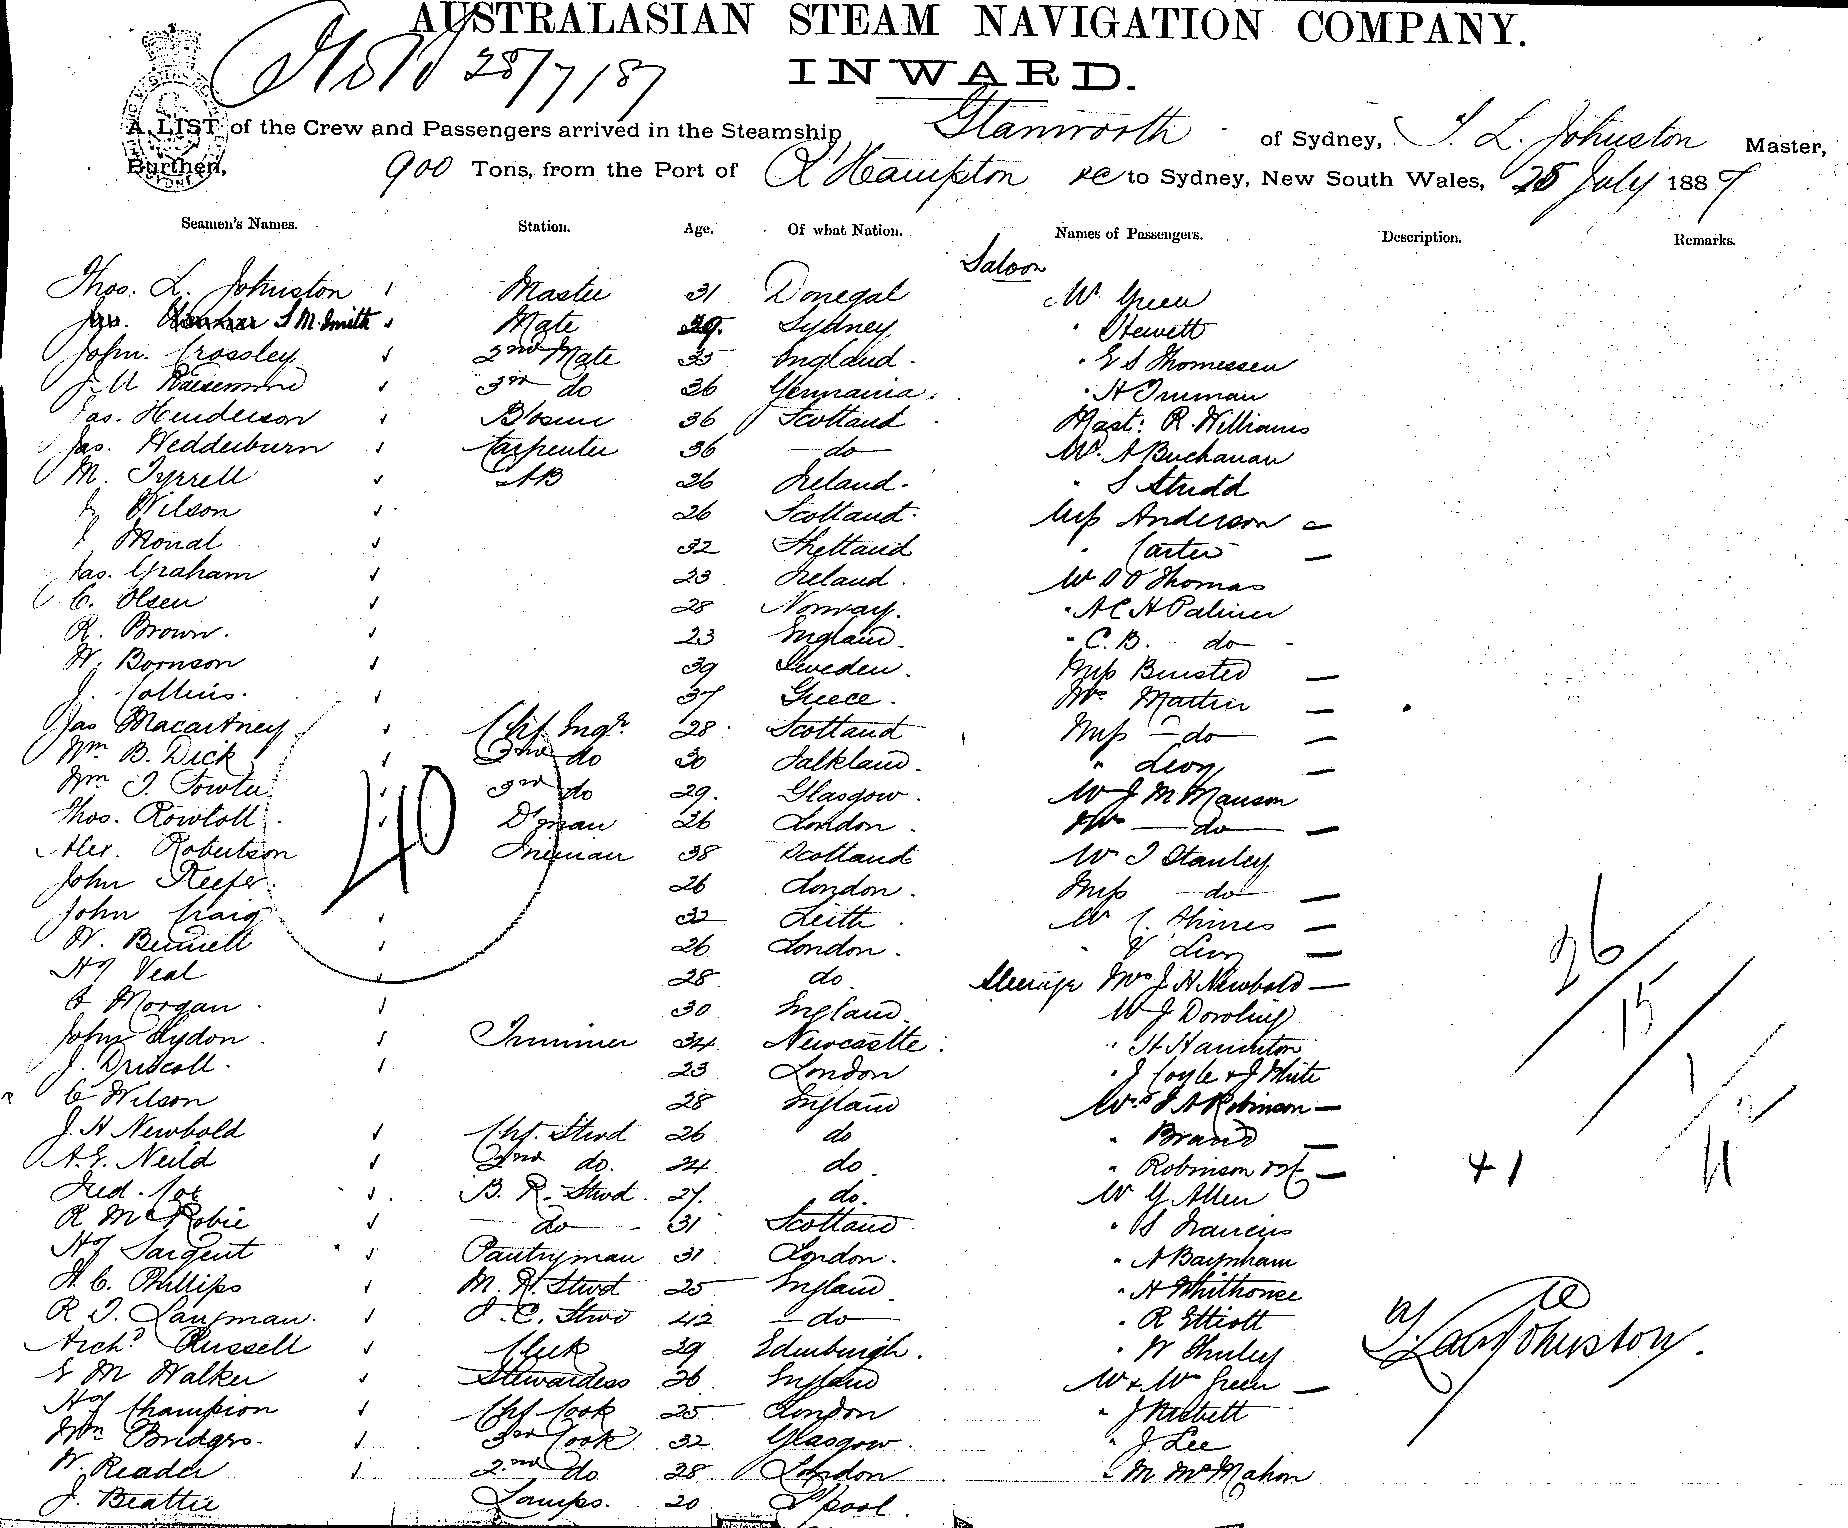 AUSTRALASIAN STEAM NAVIGATION COMPANY.
28/7/87
INWARD.
A LIST of the Crew and Passengers arrived in the Steamship, Glamworth of Sydney, T. L. Johnston Master,
Burthen, 900 Tons, from the Port of R'Hampton &c to Sydney, New South Wales, 28 July 1887
Seamen's Names. Station. Age. Of what Nation. Names of Passengers. Description. Remarks.
Saloon
Thos. L. Johnston Master 31 Donegal Mr Green
S M. Smith Mate 29. Sydney " Hewett
John. Crossley 2nd Mate 35 England. " E S Thomessen
3rd do 36 Germania. " H Inman
Jas. Henderson Bosun 36 Scotland Mast: R. Williams
Jas. Wedderburn Carpenter 36 do Mr. A Buchanan
M. Tyrrell AB 26 Ireland. " S Studd
J Wilson 26 Scotland. Miss Anderson
J Mouat 32 Shetland " Carter
Jas. Graham 23 Ireland. Mr Thomas
C. Olsen 28 Norway. " A C H Palmer
R. Brown. 23 England. " C. B. do
W. Bornson 39 Sweden. Miss Binsted
J. Collins. 37 Greece. Mrs Martin
Jas Macartney Chf Engr. 28 Scotland Miss do
Wm B. Dick 2nd do 30 Falkland. " Levy
Wm T. Fowler 3rd do 29. Glasgow. Mr J M Manson
Thos. Rowtoll D'man 26 London. Mrs do
Alex. Robertson Fireman 38 Scotland Mr T Stanley
John Keefer. 26 London. Miss do
John Craig 32 Leith. Mr
W. Bennett 26 London. " V Levy
Hy Veal 28 do Steerage Mrs J H Newbold
C Morgan. 30 England. Mr J Dowling
John Lydon. Trimmer 34 Newcastle. " H Hamilton
J. Driscoll. 23 London " J Coyle & J White
C Wilson 28 England Mrs J A Robinson
J. H Newbold Chf. Stwd 26 do " Brand
A. E. Neild 2nd do. 24 do " Robinson
Fred. Cox B. R. Stwd. 27. do. Mr G Allen
R McRobie do 31 Scotland " S Francis
Hy Sargent Pantryman 31 London. " A Baynham
H. C. Phillips M. R. Stwd 25 England. " H Whithouse
R T. Langman. F. C. Stwd 42 do " R Elliott
Archd Russell Clerk 29 Edinburgh. " W Shirley
E M Walker Stewardess 36 England Mr & Mrs Green
Hy Champion Chf Cook 25 London " J Nesbett
Wm Bridges. 3rd Cook 32 Glasgow. " J Lee
W. Reader 2nd do 28 London " M McMahon
J. Beattie Lamps. 20 L'pool.
40
26
15
1
41
Johnston.